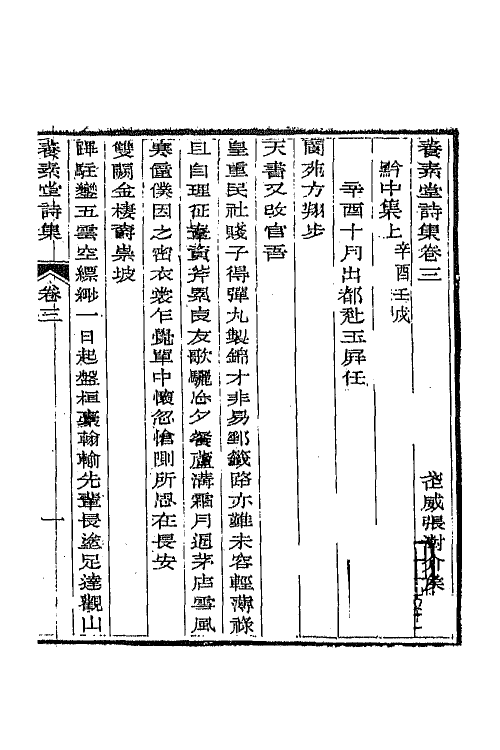 養素堂詩集卷三
武威張澍介侯
黔中集上 辛酉 壬戌
辛酉十月出都赴玉屏任
蘭苑方翔步
天書又改官吾
皇重民社賤子得彈丸製錦才非易郵籤路亦難未容輕薄祿
且自理征鞍黃斧累良友歌驪冷夕餐蘆溝霜月迥茅店雪風
寒僮僕因之密衣裘乍覺單中懷忽愴惻所思在長安
雙闕金棲壽業坡
蹕駐鑾五雲空縹緲一日起盤桓藁翰輸先輩長途足達觀山
養素堂詩集
卷三
一